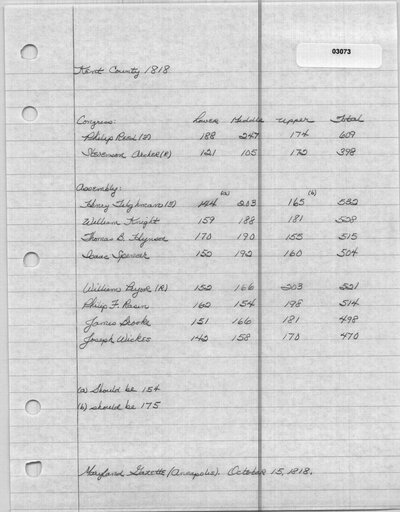 03073
Kent County 1818
Congress: Lower Middle Upper Total
Philip Reed (F) 188 247 174 609
Stevenson Archer (R) 121 105 172 398
Assembly:
Henry Tilghman (F) 144 (a) 203 165 (b) 532
William Knight 159 188 181 528
Thomas B. Hynson 170 190 155 515
Isaac Spencer 152 192 160 504
William Pryor (R) 152 166 203 521
Philip F. Rasin 162 154 198 514
James Brooke 151 166 181 498
Joseph Wickes 142 158 170 470
(a) Should be 154
(b) should be 175
Maryland Gazette (Annapolis). October 15, 1818.